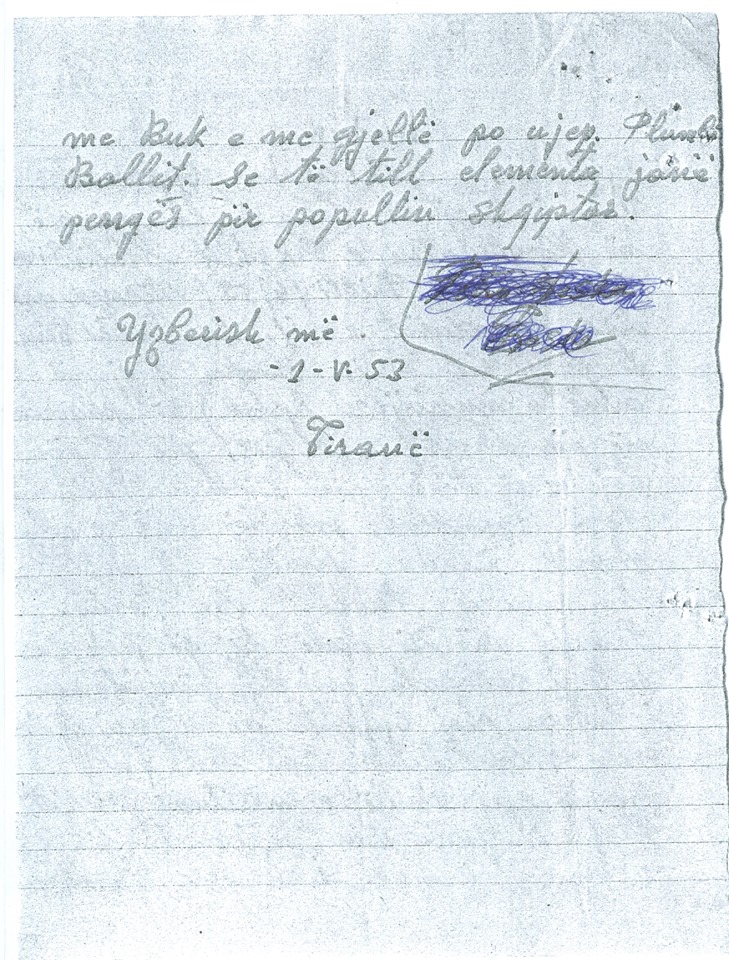 me Buk e me gjellë po u jep. Plumb
Ballit. Se të till elementa janë
pengës për popullin shqiptar.
Yzberish më
-1-V-53
Tiranë